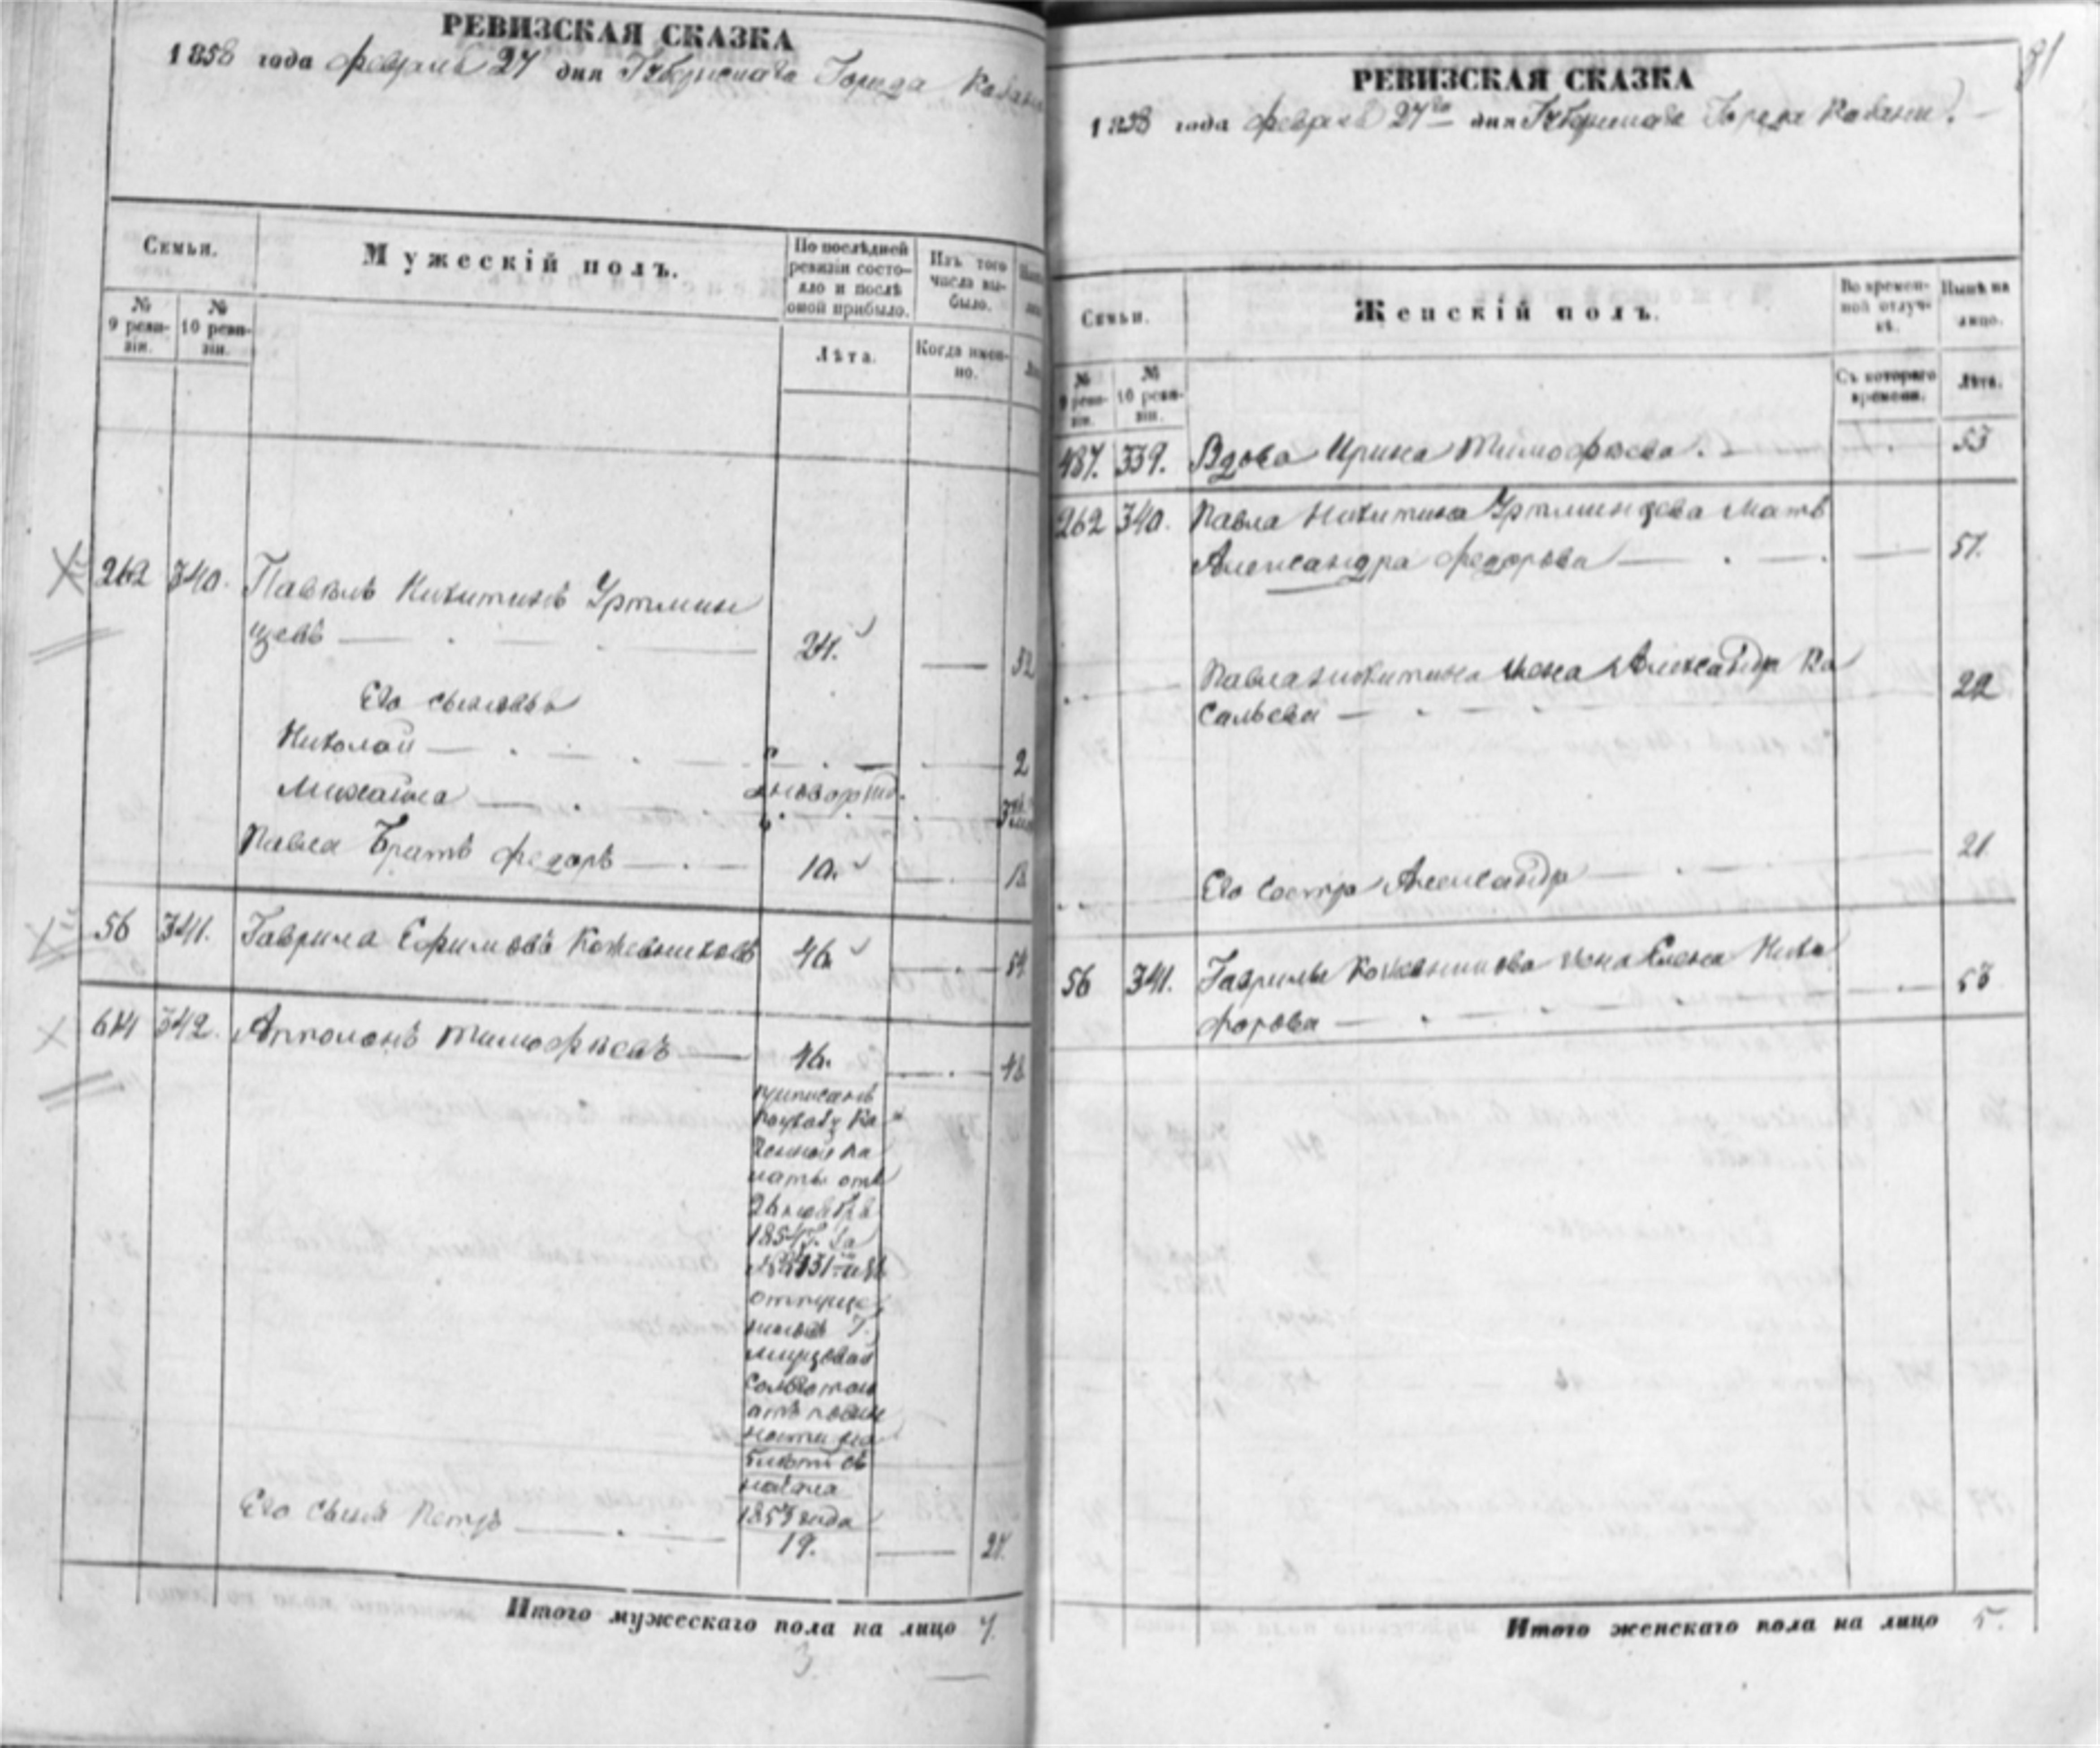 РЕВИЗСКАЯ СКАЗКА
1858 года февраля 27 дня Губернскаго Города Казани
Семьи.
Мужескій полъ.
По послѣдней ревизіи состояло и послѣ оной прибыло.
Изъ того числа выбыло.
№ 9 ревизіи.
№ 10 ревизіи.
Лѣта.
Когда именно.
262 340. Павелъ Никитинъ Уртминцевъ 24. 32
Его сыновья
Николай 2
Михаила новорожд.
Павла Братъ Федоръ 10. 18
56 341. Гаврила Ефимовъ Кожевниковъ 46 54
614 342. Апполонъ Тимофѣевъ 46. 48
приписанъ
по указу Ка
зенной па
латы отъ
26 ноября
1854 г. за
отпуще
ныхъ Г.
1857 года
Его сынъ Петръ 19. 27.
Итого мужескаго пола на лицо 7.
3
81
РЕВИЗСКАЯ СКАЗКА
1858 года февраля 27го дня Губернскаго Города Казани.
Семьи.
Женскій полъ.
Во временной отлучкѣ.
Нынѣ на лицо.
№ 9 ревизіи.
№ 10 ревизіи.
Съ котораго времени.
Лѣта.
487. 339. Вдова Ирина Тимофѣева. 53
262 340. Павла Никитина Уртминцева мать
Александра Федорова 51.
Павла Никитина жена Александра Ва
сильева 22
Его сестра Александра 21
56 341. Гаврилы Кожевникова жена Елена Ники
форова 53
Итого женскаго пола на лицо 5.